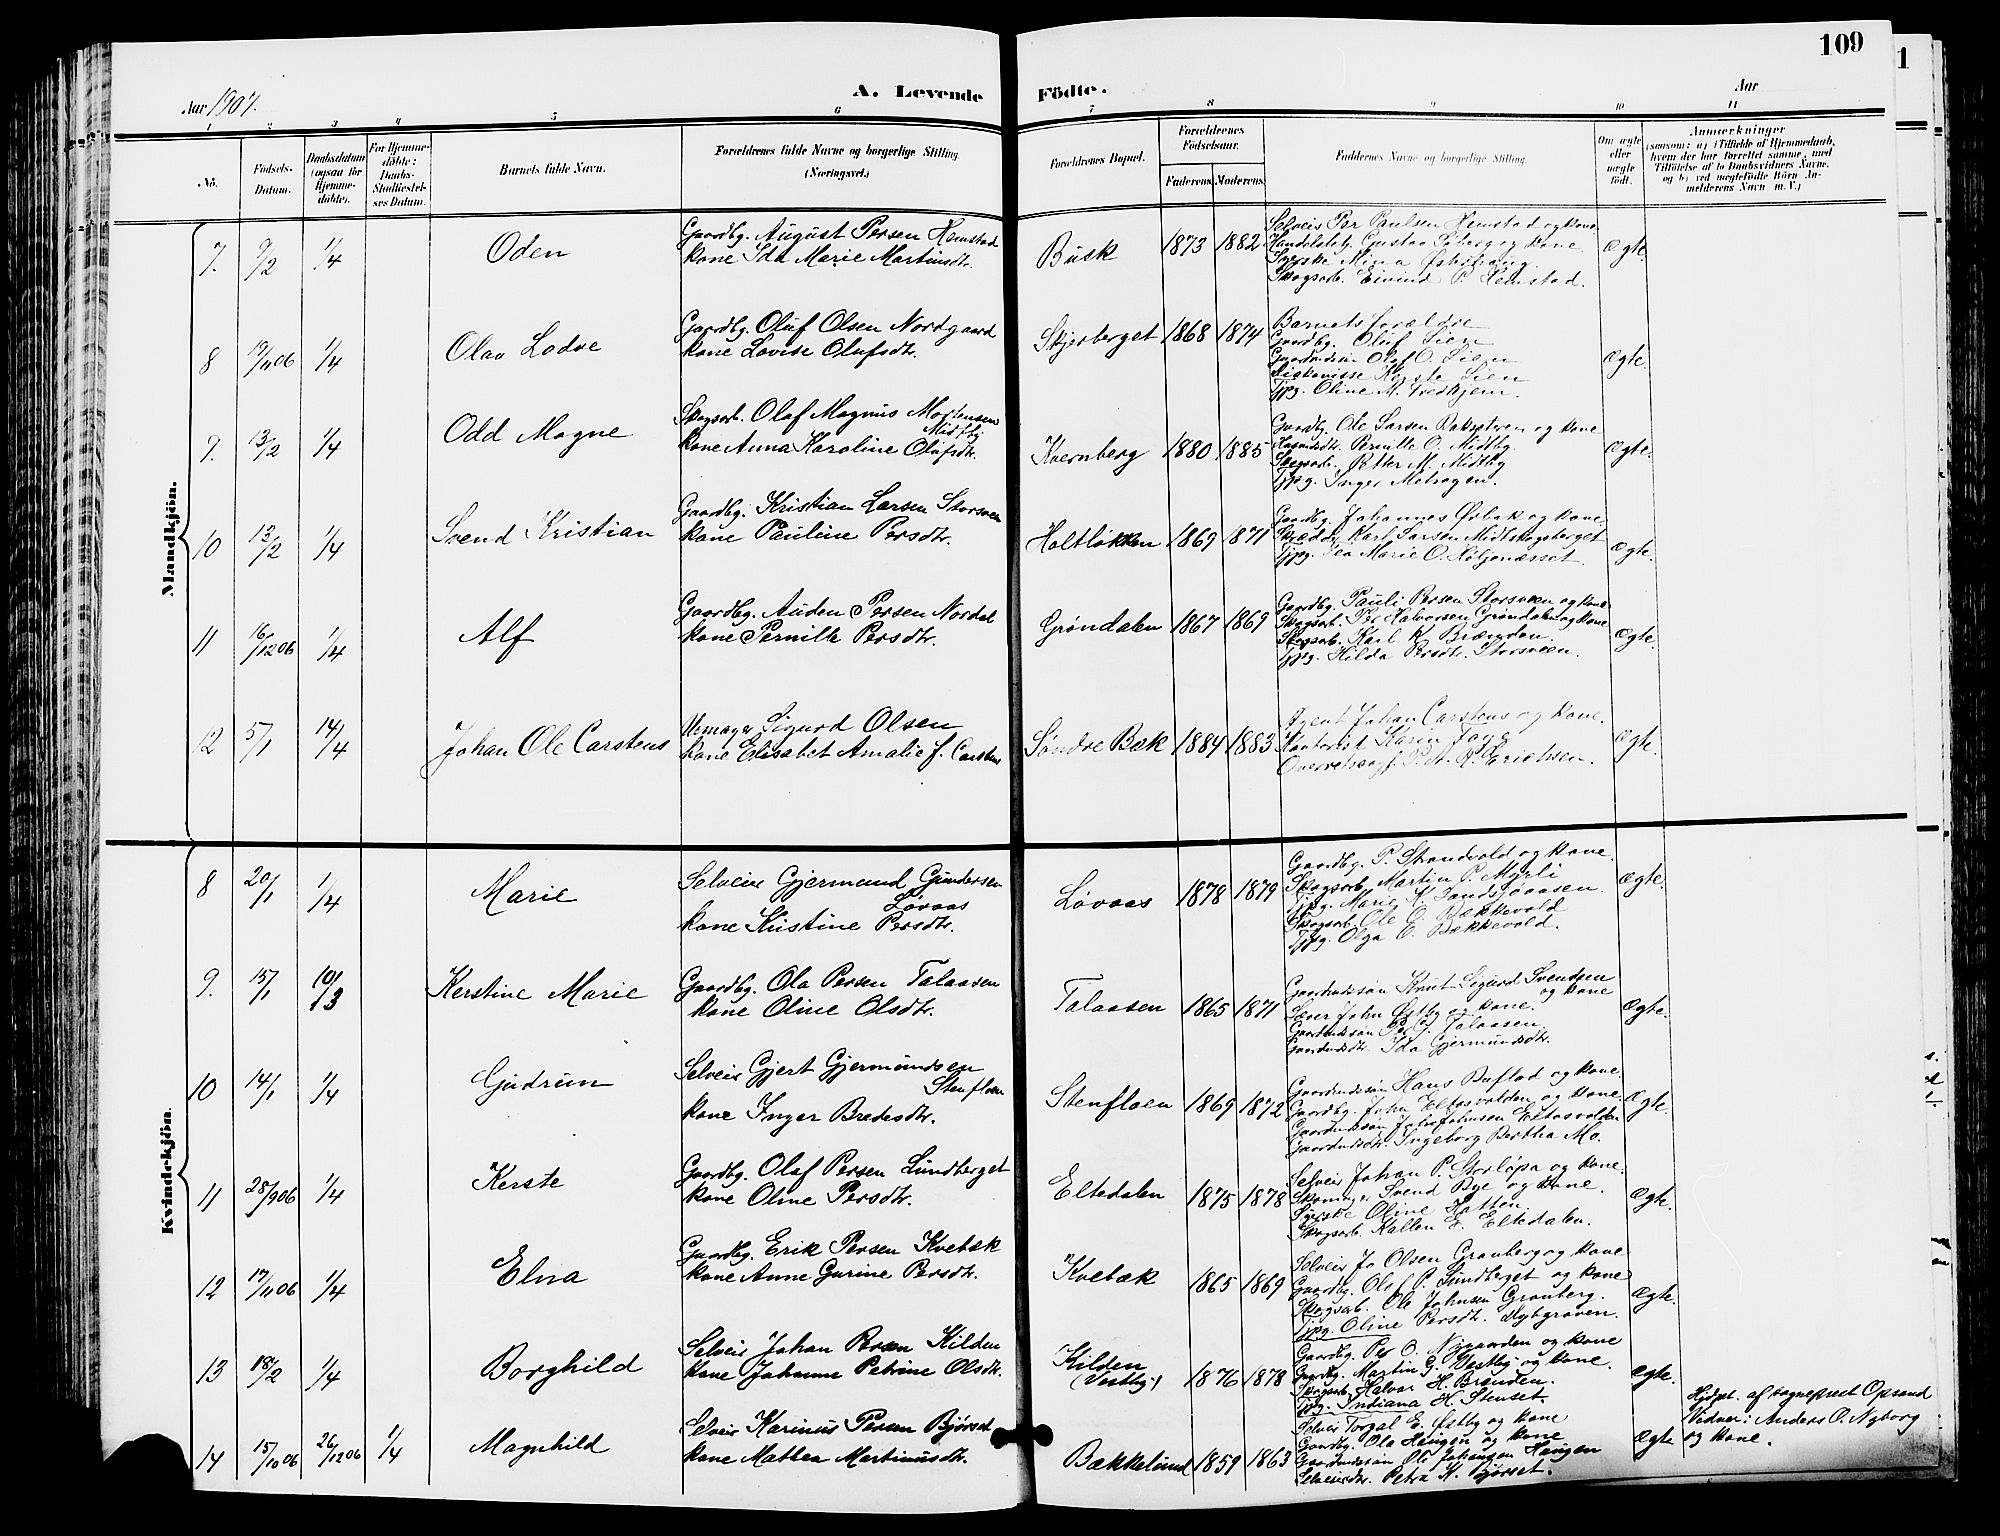 109
1
Aar 1907.
A. Levende Födte.
Aar
1 2 3 4 5 6 7 8 9 10 11
No.
Födsels-Datum.
Daabsdatum (ogsaa for Hjemme-döbte).
For Hjemme-döbte: Daabs-Stadfæstel-ses Datum.
Barnets fulde Navn.
Forældrenes fulde Navne og borgerlige Stilling. (Næringsvei.)
Forældrenes Bopæl.
Forældrenes Födselsaar.
Faderens. Moderens.
Faddernes Navne og borgerlige Stilling.
Om ægte eller uægte født.
Anmærkninger
(saasom: a) i Tilfælde af Hjemmedaab, hvem der har forrettet samme, med Tilföielse af to Daabsvidners Navne, og b) ved uægtefödte Börn An-melderens Navn m. V.)
Mandkjön.
7. 9/2 1/4 Oden
Gaardbg. August Persen Hemstad
kone Ida Marie Martinsdtr.
Busk 1873 1882
Selveier Per Paulsen Hemstad og kone
Handelsbetj. Gustav Söberg og kone
Syerske Mina
Skogsarb. Eivind P. Hemstad.
Ægte.
8 19/11 06 1/4 Olav Lodve
Gaardbg. Oluf Olsen Nordgaard
kone Lovise Olufsdtr.
Skjerberget 1868 1874
Barnets forældre
Gaardbg. Oluf Lien
Gaardmdssön Olaf O. Lien
Diakonisse Kerste Lien
Tjpg. Oline M. Tredkjem.
Ægte.
9. 13/2 1/4 Odd Magne
Skogsarb. Olaf Magnus Mortensen
Midtby
kone Anna Karoline Olufsdtr.
Kvernberg 1880 1885
Gaardbg. Ole Larsen Bakspören og kone
Husmdsdtr. Pernille O. Midtby.
Skogsarb. Petter M. Midtby
Tjpg. Inger Metragen.
Ægte.
10 13/2 1/4 Svend Kristian
Gaardbg. Kristian Larsen Storsveen
kone Pauline Persdtr.
Holtløkken 1869 1871
Gaardbg. Johannes Örbak og kone.
Skrædder Karl Larsen Midtskogsberget
Tjpg. Tea Marie O. Höljenæsset.
Ægte.
11 16/12 06 1/4 Alf
Gaardbg. Auden Persen Nordal
kone Pernille Persdtr.
Grøndalen 1867 1869
Gaardbg. Pauli Persen Storsveen og kone
Skogsarb. Per Halvorsen Gröndalen og kone
Skogsarb. Karl K. Brænden.
Tjpg. Hilda Persdtr. Storsveen.
Ægte.
12 5/1 14/4 Johan Ole Carstens
Urmager Sigurd Olsen
kone Elisabet Amalie f. Carstens
Søndre Bæk 1884 1883
Agent Johan Carstens og kone.
Kontorist Karin Faye
Overretssagf. P. A. R. Erichsen.
Ægte.
Kvindekjön.
8 20/1 1/4 Marie
Selveier Gjermund Gundersen
Løvaas
kone Kistine Persdtr.
Løvaas 1878 1879
Gaardbg. P. Strandvold og kone.
Skogsarb. Martin P. Myrli
Tjpg. Marie K. Landsjöaasen.
Skogsarb. Ole O. Bækkevold
Tjpg. Olga E. Bækkevold.
Ægte.
9. 15/1 10/3 Kerstine Marie
Gaardbg. Ola Persen Talaasen
kone Oline Olsdtr.
Talaasen 1865 1871
Gaardmdssön Knut Sigurd Svendsen
og kone
Sæver John Østby og kone.
Gaardmdssön Per J. Talaasen.
Gaardmdsdtr. Ida Gjermundsdtr.
Ægte.
10 14/1 1/4 Gudrun
Selveier Gjert Gjermundsen
Stenfloen
kone Inger Bredesdtr.
Stenfloen 1869 1872
Gaardmdssön Hans Buflod og kone
Gaardbg. John Eltosvolden og kone
Gaardmdssön John Johnsen Eltosvolden
Gaardmdsdtr. Ingeborg Bertha Mo.
Ægte.
11 28/9 06 1/4 Kerste
Gaardbg. Olaf Persen Lundberget
kone Oline Persdtr.
Eltedalen 1875 1878
Selveier Johan P. Storlöpa og kone.
Skomager Svend Bye og kone.
Syerske Oline Hatten
Skogsarb. Kallen E. Eltedalen.
Ægte.
12 17/11 06 1/4 Elna
Gaardbg. Erik Persen Kvebæk
kone Anne Gurine Persdtr.
Kvebæk 1865 1869
Selveier Jo Olsen Granberg og kone
Gaardbg. Olaf P. Lundberget og kone
Skogsarb. Ole Johnsen Granberg.
Tjpg. Oline Persdtr. Dybgraven.
Ægte.
13 18/2 1/4 Borghild
Selveier Johan Persen Kilden
kone Johanne Petrine Olsdtr.
Kilden (Vestby) 1876 1878
Gaardbg. Per O. Nygaarden og kone
Gaardbg. Martin G. Vestby og kone.
Skogsarb. Halvor H. Brænden.
Tjpg. Indiana H. Stenset.
Ægte.
14 15/10 06 26/12 06 1/4 Magnhild
Selveier Karinus Persen Bjørset
kone Mathea Martinusdtr.
Bækkelund 1859 1863
Selveier Torgal E. Östby og kone
Gaardbg. Ola Haugen og kone
Gaardmdssön Ole Johansen Haugen
Selveierdtr. Petra K. Bjørset.
Ægte
Hjdøpt. af sognepræst Opsand
Vidner: Anders O. Nyborg
og kone.